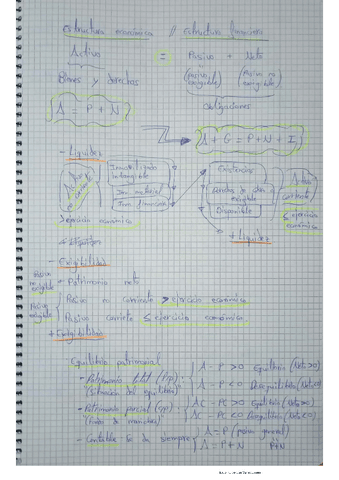 estructura económica // estructura financiera
Activo = Pasivo + Neto
Bienes y derechos (Pasivo exigible) (Pasivo no exigible)
Obligaciones
A = P + N
A + G = P + N + I
- Liquidez
Activo no corriente
Inmovilizado intangible
Inm. material
Inm. financiero
Existencias
exigible
Disponible
Activo corriente
≤ ejercicio económico
ejercicio económico
+ Liquidez
- Exigibilidad
Pasivo no exigible
- Patrimonio neto
Pasivo exigible
Pasivo no corriente > ejercicio económico
Pasivo corriente ≤ ejercicio económico
+ Exigibilidad
Equilibrio patrimonial
- Patrimonio total
A - P > 0 Equilibrio (Neto > 0)
A - P < 0 Desequilibrio (Neto < 0)
- Patrimonio parcial
(Fondo de maniobra)
AC - PC > 0 Equilibrio (Neto > 0)
AC - PC < 0 Desequilibrio (Neto < 0)
- Contable de siempre
A = P (general)
A = P + N
P+N